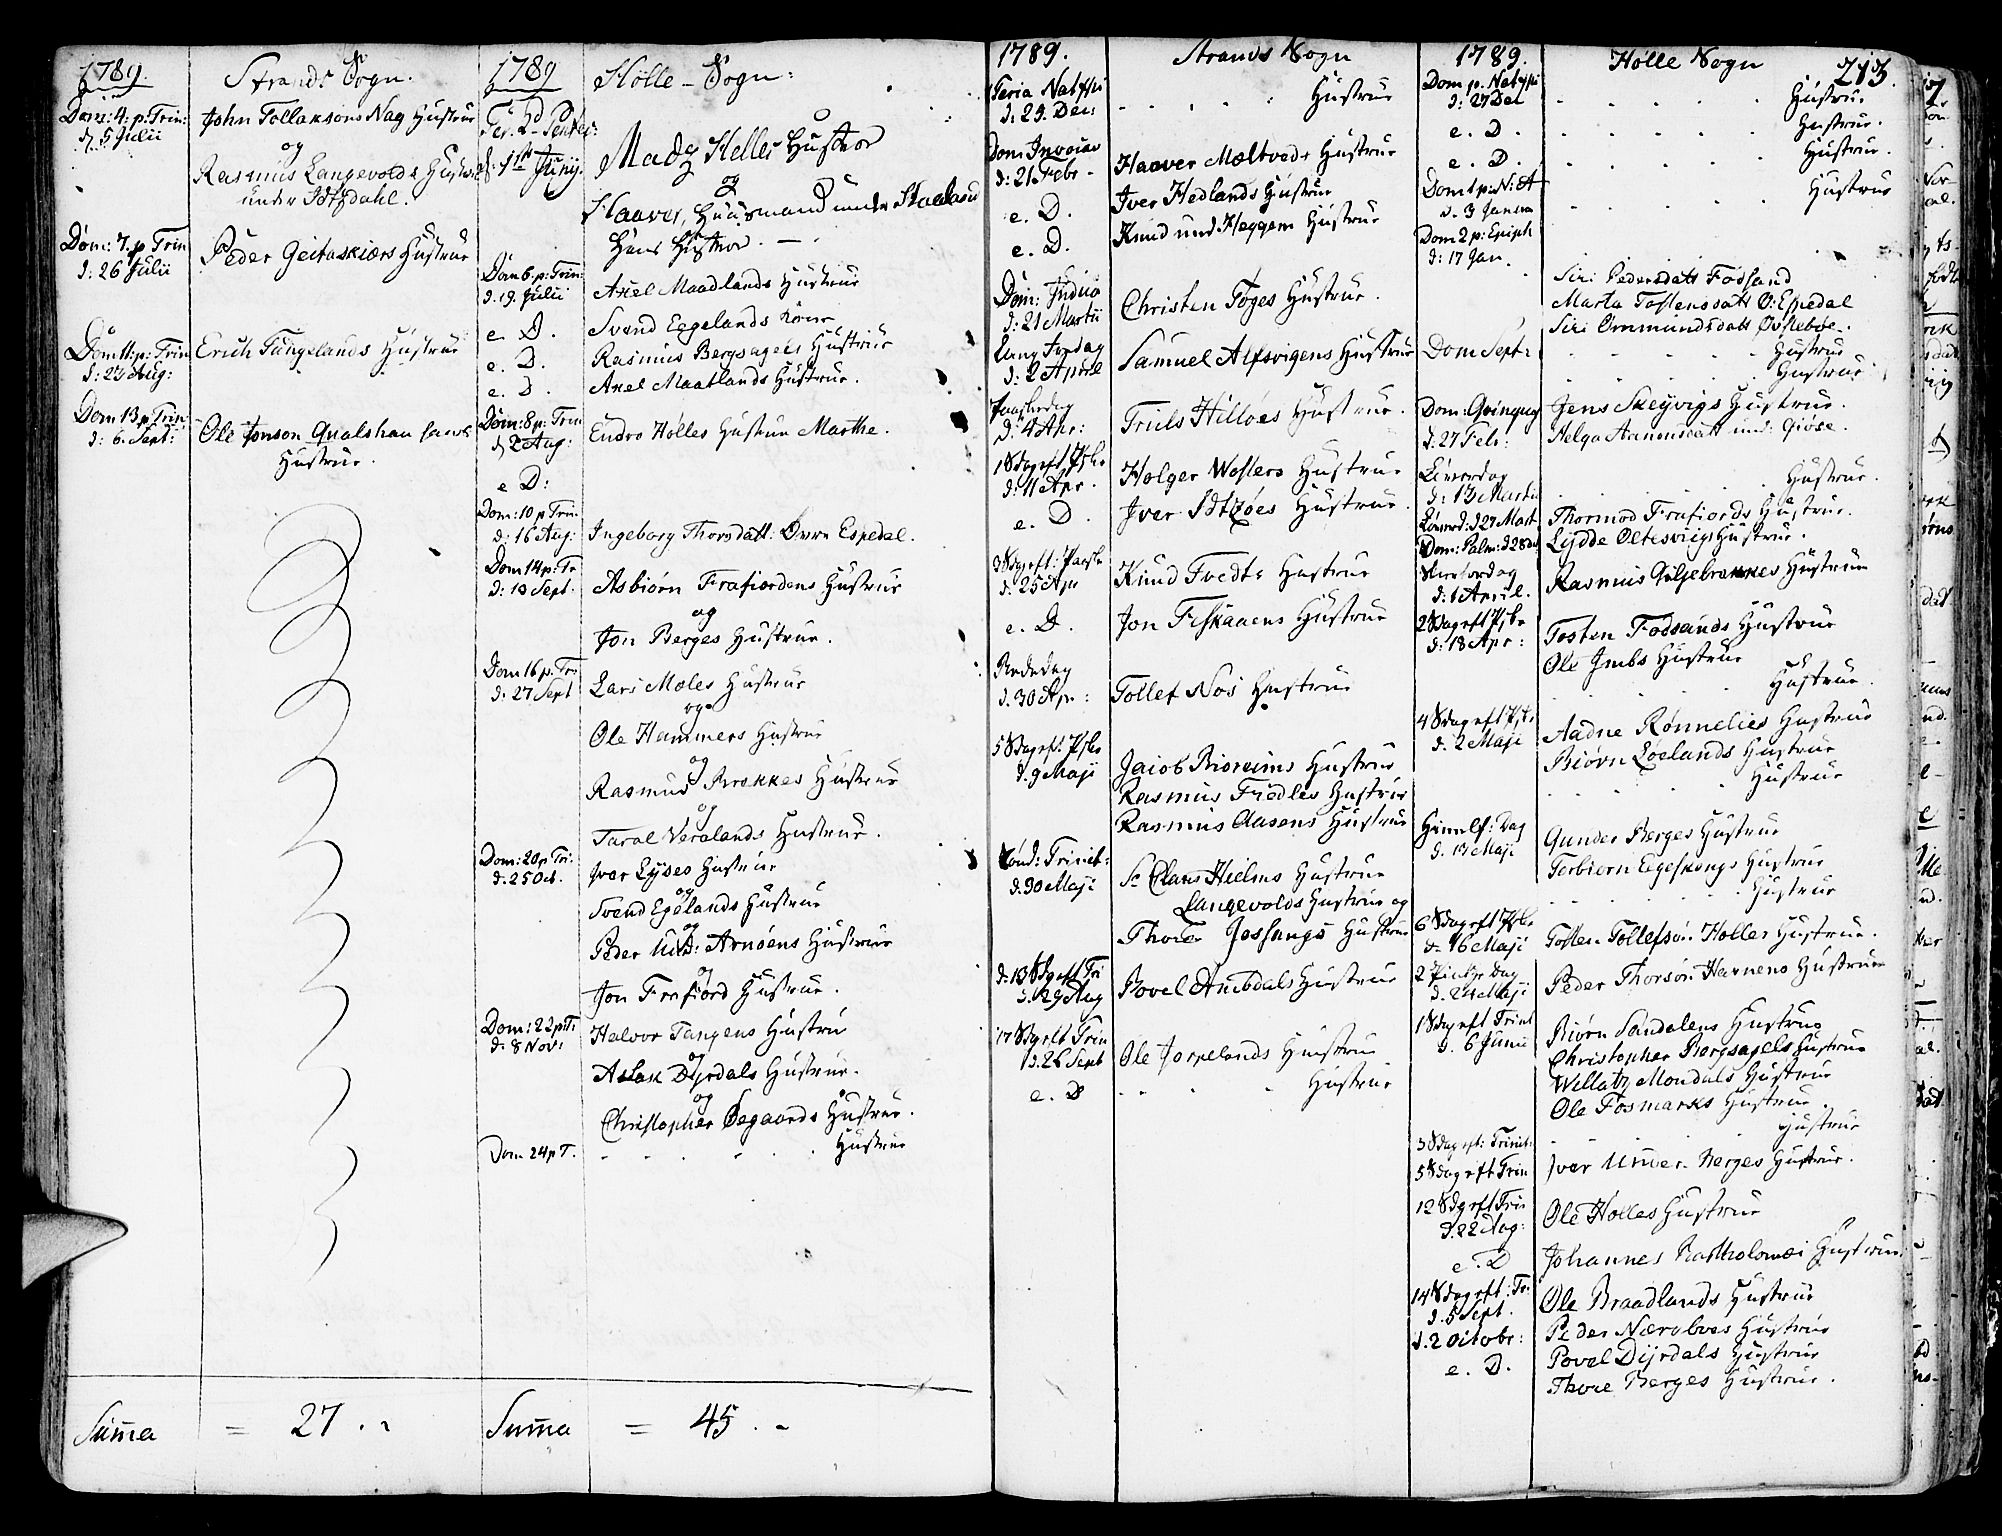 1789.
Strands Sogn.
Dom: 4. p: Trin:
d. 5 Julii
John Tollaksons Nag Hustrue
og
Rasmus Langevolds Hustrue
under Idtzdahl.
Dom: 7. p Trin
d: 26 Julii
Peder Geitaskiærs Hustrue
Dom 11: p: Trin
d: 23 Aug:
Erich Tungelands Hustrue
Dom 13 p Trin
d: 6. Sept:
Ole Jonson
Hustrue.
Summa = 27.
1789
Hölle - Sogn:
Fer. 2d
d: 1ste Junij.
Madz Helles Hustroe
og
Haaver, Huusmand under
Hans Hustroe.
Dom 6. p: Trin:
d. 19. Julii
Axel Maadlands Hustrue
e D.
Svend Eggelands Kone
e. D.
Rasmus Bergsagels Hustrue
e. D.
Axel Maatlands Hustrue.
Dom: 8 p: Trin
d 2 Aug:
Endre Hölles Hustrue Marthe.
e D:
Dom: 10 p Trin.
d: 16 Aug:
Ingeborg Thorsdatt: Espedal.
Dom 14 p: Tr
d: 13 Sept.
Asbiörn Frafiordens Hustrue
og
Jon Berges Hustrue.
Dom 16 p: Tri
d: 27 Sept
Lars Meles Hustrue
og
Ole Hammers Hustrue
og
Rasmus Brekkes Hustrue
og
Taral Veralands Hustrue.
Dom: 20 p Tri.
d. 25 Oct.
Iver Lyses Hustrue
og
Svend Egelands Hustrue
og
Peder Arnöens Hustrue
og
Jon Frafiord Hustrue.
Dom: 22 p T:
d: 8 Nov:
Halvor Tangens Hustrue
og
Aslak Dyrdals Hustrue.
og
Christopher Öegaards Hustrue.
Dom 24 p T. Hustrue
Summa = 45.
1789.
Strands Sogn
d: 29. Dec:
Hustrue
Dom
d: 21. Febr
Haaver Meltveds Hustrue
e. D.
Iver Hedlands Hustrue
e. D.
Knud und Heggem Hustrue
Dom: Judica
d: 21 Martii
Christen Töges Hustrue.
d: 2 April
Samuel Alfsvigens Hustrue
Paaskedag
d: 4 Apr:
Truls Hilloes Hustrue.
d: 11 Apr.
Holger Wosters Hustrue
e. D.
Iver Idtzöes Hustrue.
d. 25 Apr
Knud Tvedts Hustrue
e. D.
Jon Fiskaaens Hustrue
Bededag
d. 30 Apr:
Tollef Nos Hustrue
d. 9 Maji
Jacob Biöreims Hustrue
Rasmus Tredles Hustrue
Rasmus Aasens Hustrue
Sönd: Trinit:
d. 30 Maji
Sr Claus Hielms Hustrue
Langevolds Hustrue og
Thore Jossangs Hustrue
d: 13 Sdg eft Tri
d. 29 Aug
Povel Hustrue
17 Sdg eft Trin
d. 26 Sept
Ole Jörpelands Hustrue
e. D Hustrue
1789.
Hölle Sogn
213.
d: 27 Dec
Hustrue
e. D.
Hustrue.
e. D.
Hustrue.
d. 3 Januar
Hustrue
Dom 2 p: Epiph
d: 17 Jan.
Siri Pedersdatt Fossand
Marta Tostensdatt Ö: Espedal
Siri Ommundsdatt Övstebøe.
Dom Sept:
Hustrue
Hustrue.
Dom: Qvinquag
d. 27 Febr:
Jens Skeyvigs Hustrue.
Helga und: Giöse.
Löverdag
d: 13 Martii
Hustrue.
Löverd: d 27 Mart
Thormod Frafiords Hustrue.
Dom: Palm: d 28
Lydde Oltesvigs Hustrue.
Skiertorsdag
d: 1 April.
Rasmus Giljebrekkes Hustrue
d. 18 Apr:
Tosten Fossands Hustrue
Ole Hustrue
Hustrue.
d. 2 Maji
Aadne Rönnelies Hustrue
Biörn Löelands Hustrue
Hustrue
Himlf: Dag
d. 13 Maji
Gunder Berges Hustrue
Torbiörn Egeskougs Hustrue
Hustrue
d. 16 Maji
Tosten Tollefsön Holles Hustrue.
2 Pintze Dag
d. 24 Maji
Peder Thorsön Hustrue
1 Sdag eft Trinit
d. 6 Junii
Biörn Sandalens Hustrue
Christopher Bergsagels Hustrue
Willatz Mondals Hustrue
Ole Fosmarks Hustrue.
3 Sdag eft: Trinit:
Hustrue
5 Sdag eft Trin
Iver Berges Hustrue.
12 Sdg eft Trin
d. 22 Aug:
Ole Hölles Hustrue
e. D
Johannes Bartholomæi Hustrue.
14 Sdag eft: Tr:
d. 5 Sept.
Ole Braadlands Hustrue
d. 2 Octobr:
Peder Hustrue
e. D.
Povel Dyrdals Hustrue
Thore Berges Hustrue.